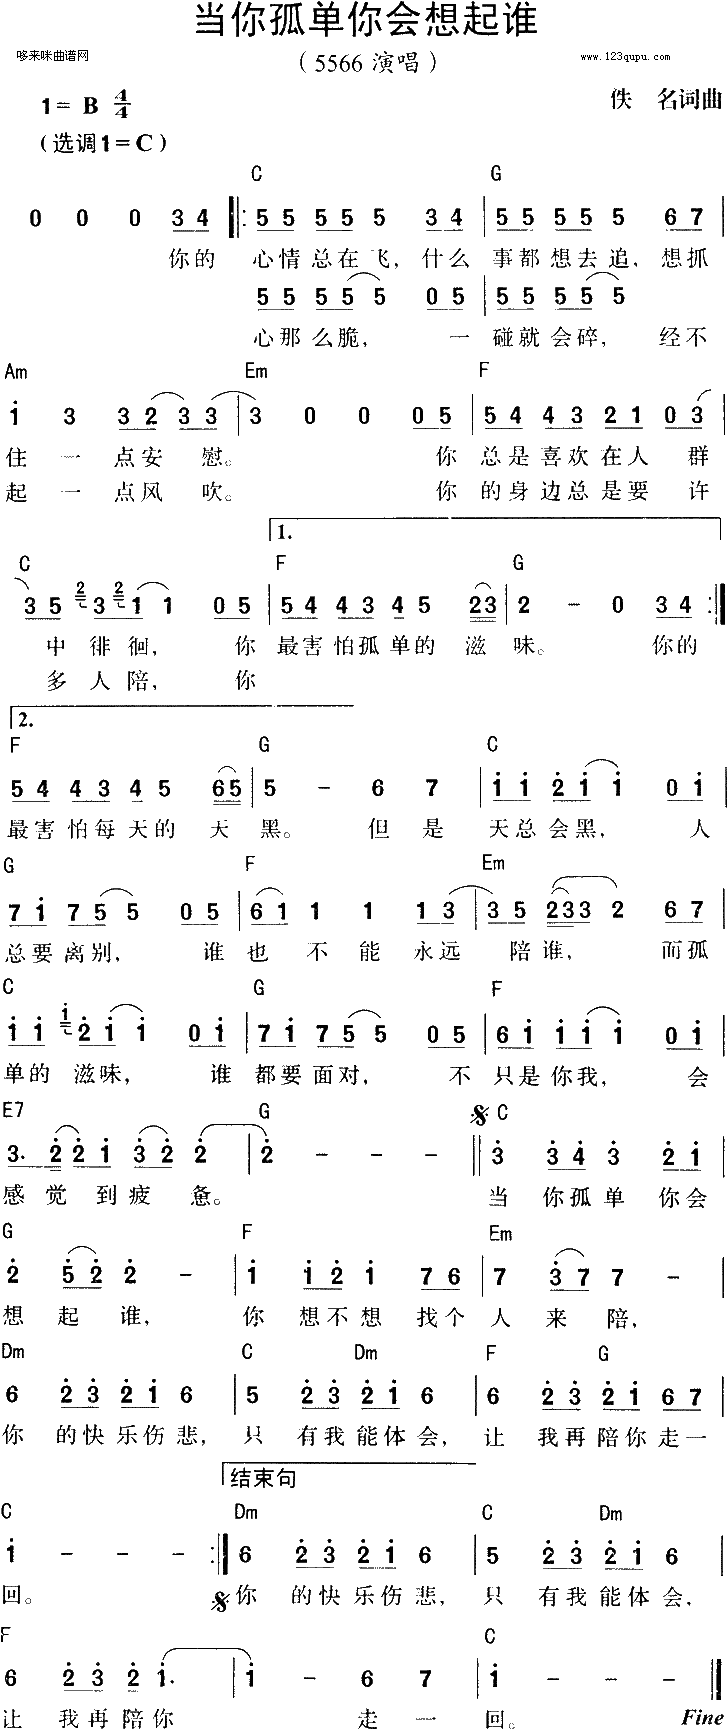 当你孤单你会想起谁
哆来咪曲谱网
（5566 演唱）
www.123qupu.com
1= B 4/4
佚 名词曲
（选调1=C）
C G
0 0 0 34 ‖: 55 55 5 34 | 55 55 5 67 |
你的 心情总在飞，什么 事都想去追，想抓
55 55 5 05 | 55 55 5
心那么脆， 一 碰就会碎， 经不
Am Em F
i 3 32 33 | 3 0 0 05 | 54 43 21 03 |
住 一 点安 慰。 你 总是喜欢在人 群
起 一 点风 吹。 你 的身边总是要 许
1.
C F G
35 2 3 2 1 1 05 | 54 43 45 23 | 2 - 0 34 :‖
中 徘徊， 你 最害怕孤单的 滋 味。 你的
多人陪， 你
2.
F G C
54 43 45 65 | 5 - 6 7 | i i 2 i i 0 i |
最害怕每天的 天 黑。 但 是 天总会黑， 人
G F Em
7 i 75 5 05 | 61 1 1 13 | 35 233 2 67 |
总要离别， 谁 也 不 能 永远 陪谁， 而孤
C G F
i i i 2 i i 0 i | 7 i 75 5 05 | 6 i i i i 0 i |
单的 滋味， 谁 都要面对， 不 只是你我， 会
E7 G 𝄋 C
3. 2 2 i 3 2 2 | 2 - - - ‖ 3 3 4 3 2 i |
感 觉 到疲 惫。 当 你孤单 你会
G F Em
2 5 2 2 - | i i 2 i 76 | 7 3 7 7 - |
想 起 谁， 你 想不想 找个 人 来 陪，
Dm C Dm F G
6 2 3 2 i 6 | 5 2 3 2 i 6 | 6 2 3 2 i 67 |
你 的快乐伤悲，只 有我能体会，让 我再陪你走一
结束句
C Dm C Dm
i - - - :‖ 6 2 3 2 i 6 | 5 2 3 2 i 6 |
回。 𝄋 你 的快乐伤悲，只 有我能体会，
F C
6 2 3 2 i. | i - 6 7 | i - - ‖
让 我再陪你 走 一 回。 Fine